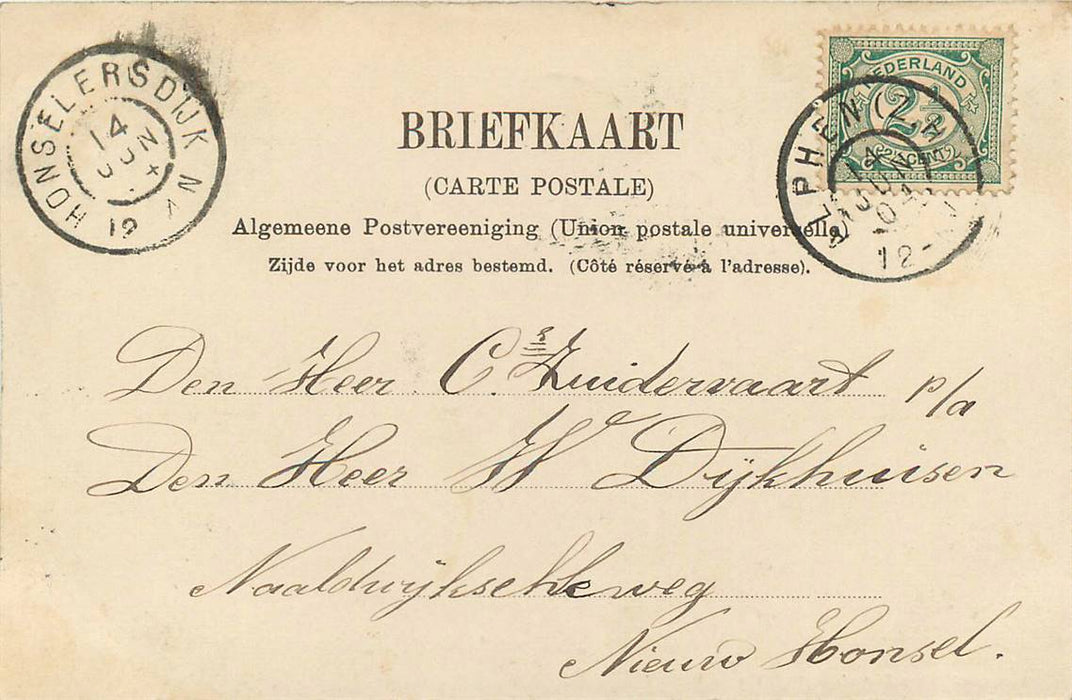 HONSELERSDIJK
14 JUN
12
NEDERLAND
2½
CENT
ALPHEN (Z.H.)
14 JUN 04
12-
BRIEFKAART
(CARTE POSTALE)
Algemeene Postvereeniging (Union postale universelle)
Zijde voor het adres bestemd. (Côté réservé à l'adresse).
Den Heer C. Zuidervaart p/a
Den Heer W Dijkhuisen
Naaldwijkscheweg
Nieuw Honsel.